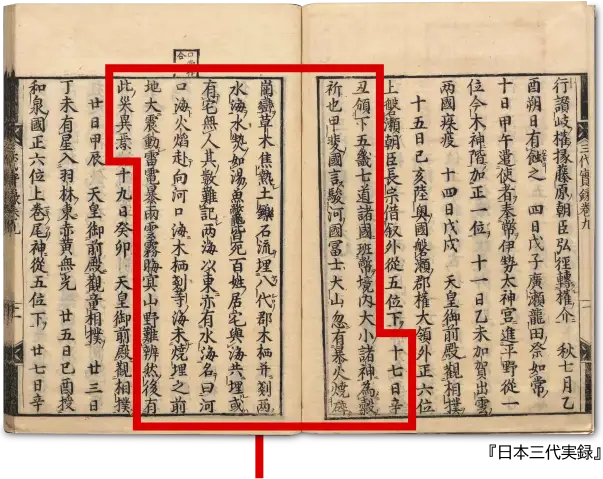 行讃岐權掾藤原朝臣弘徑轉權介 秋七月乙
酉朔日有蝕之 四日戊子廣瀨龍田祭如常
十日甲午遣使者奉幣伊勢太神宮進平野從一
位今木神階加正一位 十一日乙未加賀出雲
兩國疾疫 十四日戊戌 天皇御前殿觀相撲
十五日己亥陸奧國磐瀨郡權大領外正六位
上磐瀨朝臣長宗借叙外從五位下 十七日辛
丑頒下五畿七道諸國班幣境內大小諸神為穀
祈也甲斐國言駿河國冨士大山忽有暴火燒碎
崗巒草木焦熱土鑠石流埋八代郡本栖并剗兩
水海水熱如湯魚鼈皆死百姓居宅與海共埋或
有宅無人其數難記兩海以東亦有水海名曰河
口海火焰赴向河口海本栖剗等海未燒埋之前
地大震動雷電暴雨雲霧晦冥山野難辨然後有
此災異焉 十九日癸卯 天皇御前殿觀相撲
廿日甲辰 天皇御前殿觀童相撲 廿三日
丁未有星入羽林東赤黃無光 廿五日己酉授
和泉國正六位上巻尾神從五位下 廿七日辛
三代實録卷九
『日本三代実録』